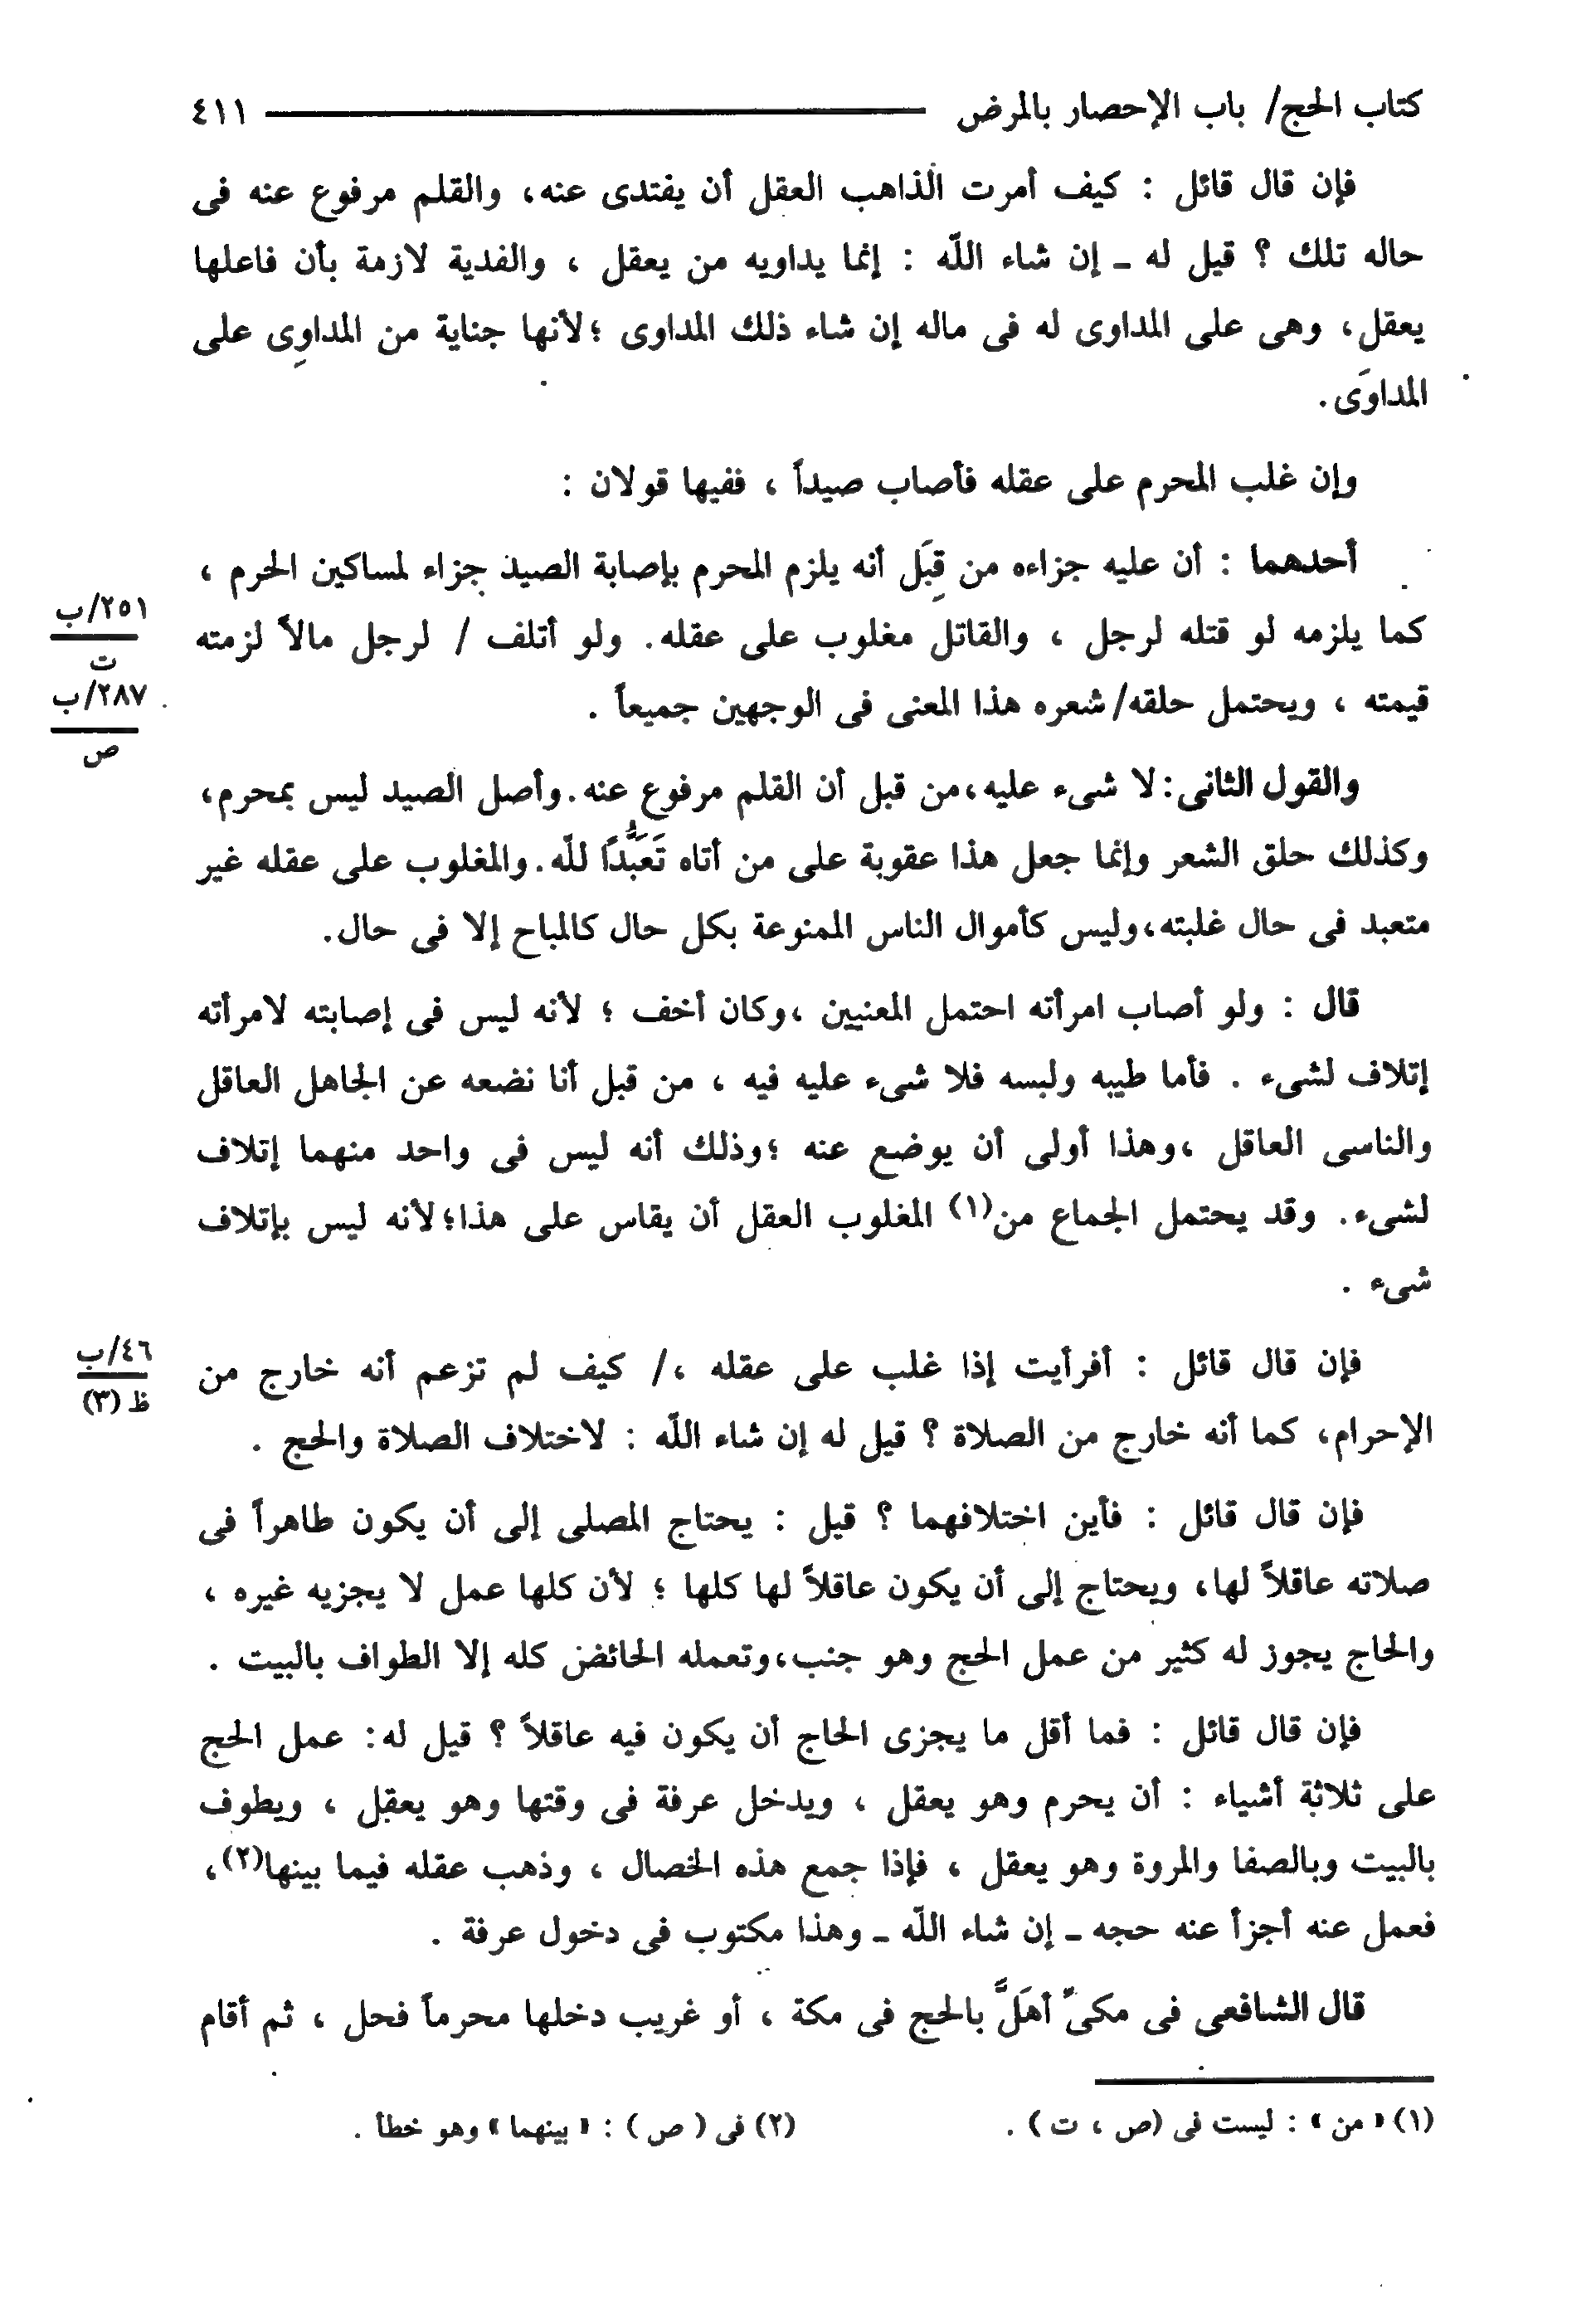 كتاب الحج/ باب الإحصار بالمرض ٤١١
فإن قال قائل : كيف أمرت الذاهب العقل أن يفتدى عنه، والقلم مرفوع عنه فى
حاله تلك ؟ قيل له ـ إن شاء اللّه : إنما يداويه من يعقل ، والفدية لازمة بأن فاعلها
يعقل، وهى على المداوى له فى ماله إن شاء ذلك المداوى ؛لأنها جناية من المداوِى على
المداوَى.
وإن غلب المحرم على عقله فأصاب صيداً ، ففيها قولان :
أحدهما : أن عليه جزاءه من قِبَل أنه يلزم المحرم بإصابة الصيد جزاء لمساكين الحرم ،
كما يلزمه لو قتله لرجل ، والقاتل مغلوب على عقله. ولو أتلف / لرجل مالاً لزمته
قيمته ، ويحتمل حلقه/ شعره هذا المعنى فى الوجهين جميعاً .
٢٥١/ب
ت
٢٨٧/ب
ص
والقول الثانى: لا شىء عليه،من قبل أن القلم مرفوع عنه.وأصل الصيد ليس بمحرم،
وكذلك حلق الشعر وإنما جعل هذا عقوبة على من أتاه تَعَبُّدًا للّه.والمغلوب على عقله غير
متعبد فى حال غلبته،وليس كأموال الناس الممنوعة بكل حال كالمباح إلا فى حال.
قال : ولو أصاب امرأته احتمل المعنيين ،وكان أخف ؛ لأنه ليس فى إصابته لامرأته
إتلاف لشىء . فأما طيبه ولبسه فلا شىء عليه فيه ، من قبل أنا نضعه عن الجاهل العاقل
والناسى العاقل ،وهذا أولى أن يوضع عنه ؛وذلك أنه ليس فى واحد منهما إتلاف
لشىء. وقد يحتمل الجماع من(١) المغلوب العقل أن يقاس على هذا؛لأنه ليس بإتلاف
شىء .
فإن قال قائل : أفرأيت إذا غلب على عقله ،/ كيف لم تزعم أنه خارج من
٤٦/ب
ظ (٣)
الإحرام، كما أنه خارج من الصلاة ؟ قيل له إن شاء اللّه : لاختلاف الصلاة والحج .
فإن قال قائل : فأين اختلافهما ؟ قيل : يحتاج المصلى إلى أن يكون طاهراً فى
صلاته عاقلاً لها، ويحتاج إلى أن يكون عاقلاً لها كلها ؛ لأن كلها عمل لا يجزيه غيره ،
والحاج يجوز له كثير من عمل الحج وهو جنب،وتعمله الحائض كله إلا الطواف بالبيت .
فإن قال قائل : فما أقل ما يجزى الحاج أن يكون فيه عاقلاً ؟ قيل له: عمل الحج
على ثلاثة أشياء : أن يحرم وهو يعقل ، ويدخل عرفة فى وقتها وهو يعقل ، ويطوف
بالبيت وبالصفا والمروة وهو يعقل ، فإذا جمع هذه الخصال ، وذهب عقله فيما بينها(٢)،
فعمل عنه أجزأ عنه حجه ـ إن شاء اللّه ـ وهذا مكتوب فى دخول عرفة .
قال الشافعى فى مكىّ أهَلَّ بالحج فى مكة ، أو غريب دخلها محرماً فحل ، ثم أقام
(١) « من » : ليست فى (ص ، ت ) .
(٢) فى ( ص ) : « بينهما » وهو خطأ .